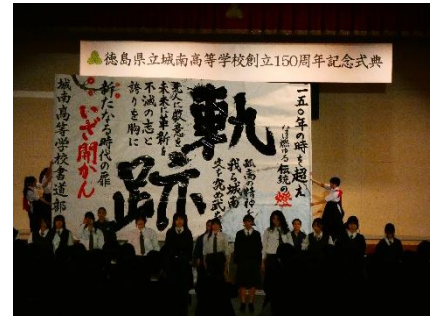 徳島県立城南高等学校創立150周年記念式典
一五〇年の時を超え
なほ燃ゆる伝統の燈
孤高の精神を
我ら城南
文を究め武を
軌跡
先人に敬意を
未来に革新を
不滅の志と
誇りを胸に
新たなる時代の扉
いざ開かん
城南高等学校書道部